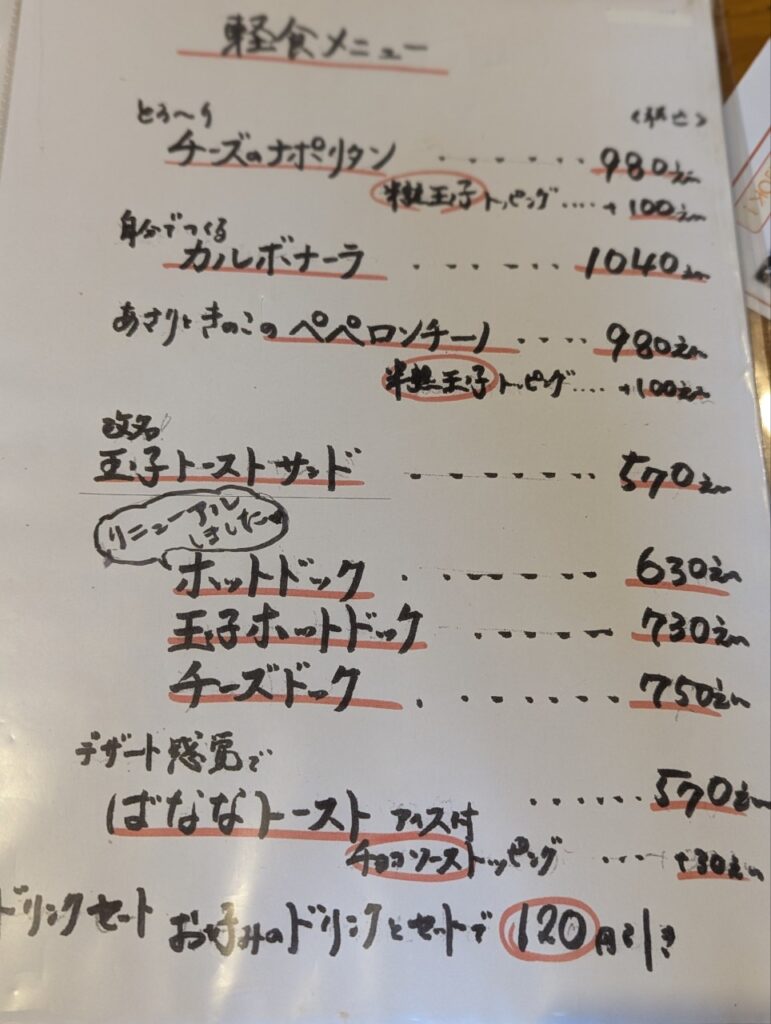 軽食メニュー
<税込>
とろ〜り
チーズのナポリタン ・・・・・・ 980えん
半熟玉子トッピング‥‥ +100えん
自分でつくる
カルボナーラ ・・・・・・ 1040えん
あさりときのこのペペロンチーノ ・・・・ 980えん
半熟玉子トッピング‥‥ +100えん
改名
玉子トーストサンド ・・・・・・ 570えん
リニューアル
しました
ホットドック ・・・・・・・ 630えん
玉子ホットドック ・・・・・ 730えん
チーズドック ・・・・・・・ 750えん
デザート感覚で
ばななトースト アイス付 ・・・・・ 570えん
チョコソーストッピング ・・・ +30えん
ドリンクセート お好みのドリンクとセットで 120円引き